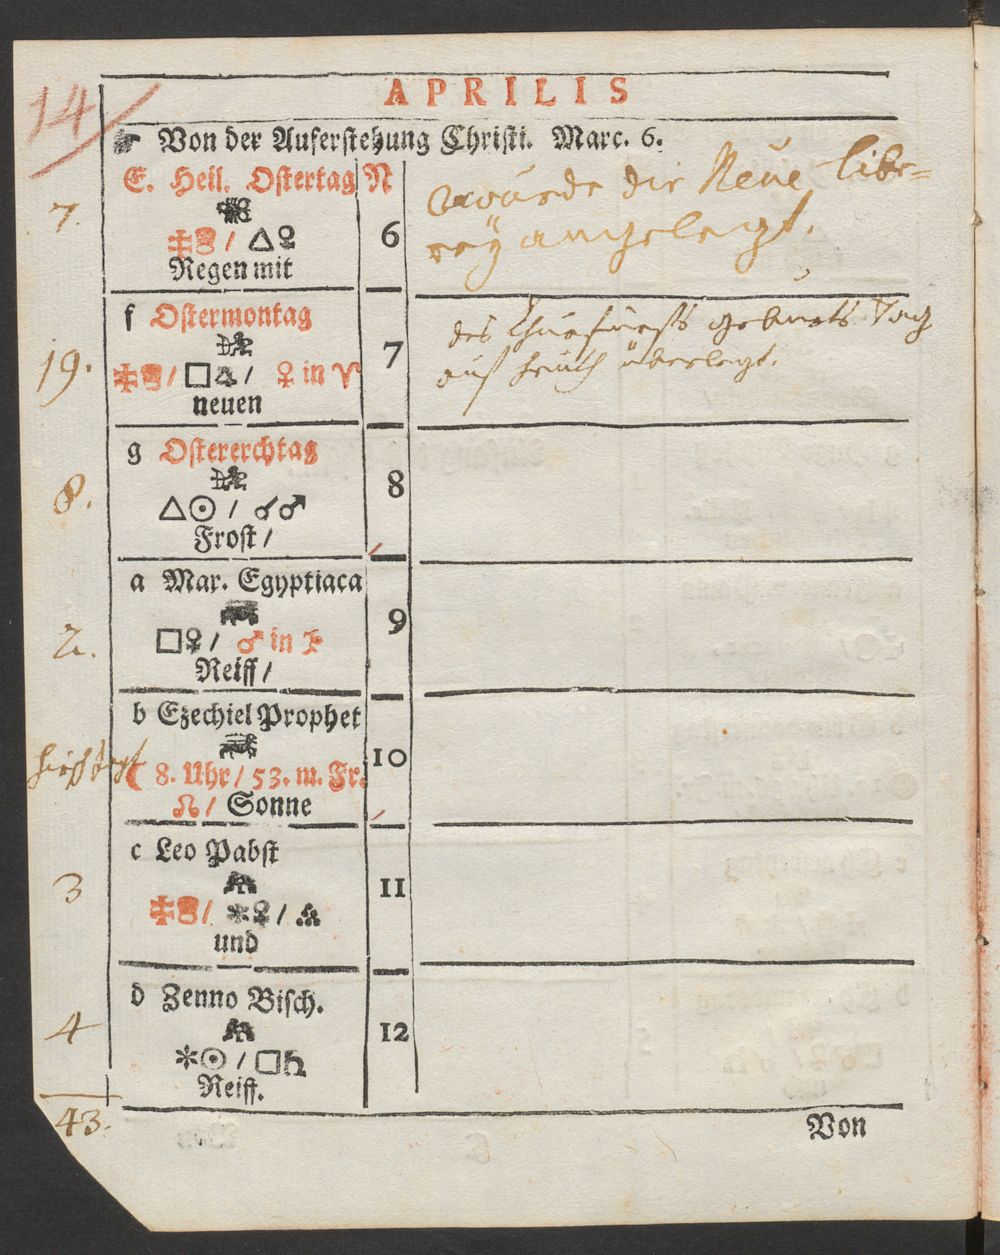 14
APRILIS
☞ Von der Auferstehung Christi. Marc. 6.
E. Heil. Ostertag N
7.
/ △♀
6
Regen mit
wurde die Neue libe-
rey angelegt.
f Ostermontag
19.
/ □♃ / ♀ in ♈
7
neuen
des Churfürsts geburts Tag
auf heuth überlegt.
g Ostererchtag
8.
△☉ / ☌♂
8
Frost /
a Mar. Egyptiaca
2.
□♀ / ♂ in
9
Reiff /
b Ezechiel Prophet
☾ 8. Uhr / 53. m. Fr.
10
☊ / Sonne
c Leo Pabst
3
/ ✱♀ /
11
und
d Zenno Bisch.
4
✱☉ / □♄
12
Reiff.
43.
Von